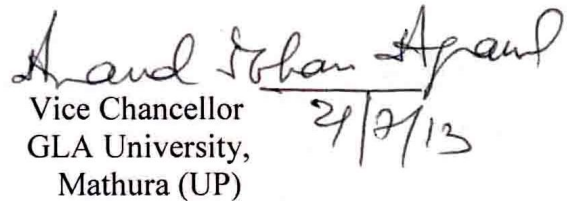 Anand Mohan Agrawal
Vice Chancellor
GLA University,
Mathura (UP)